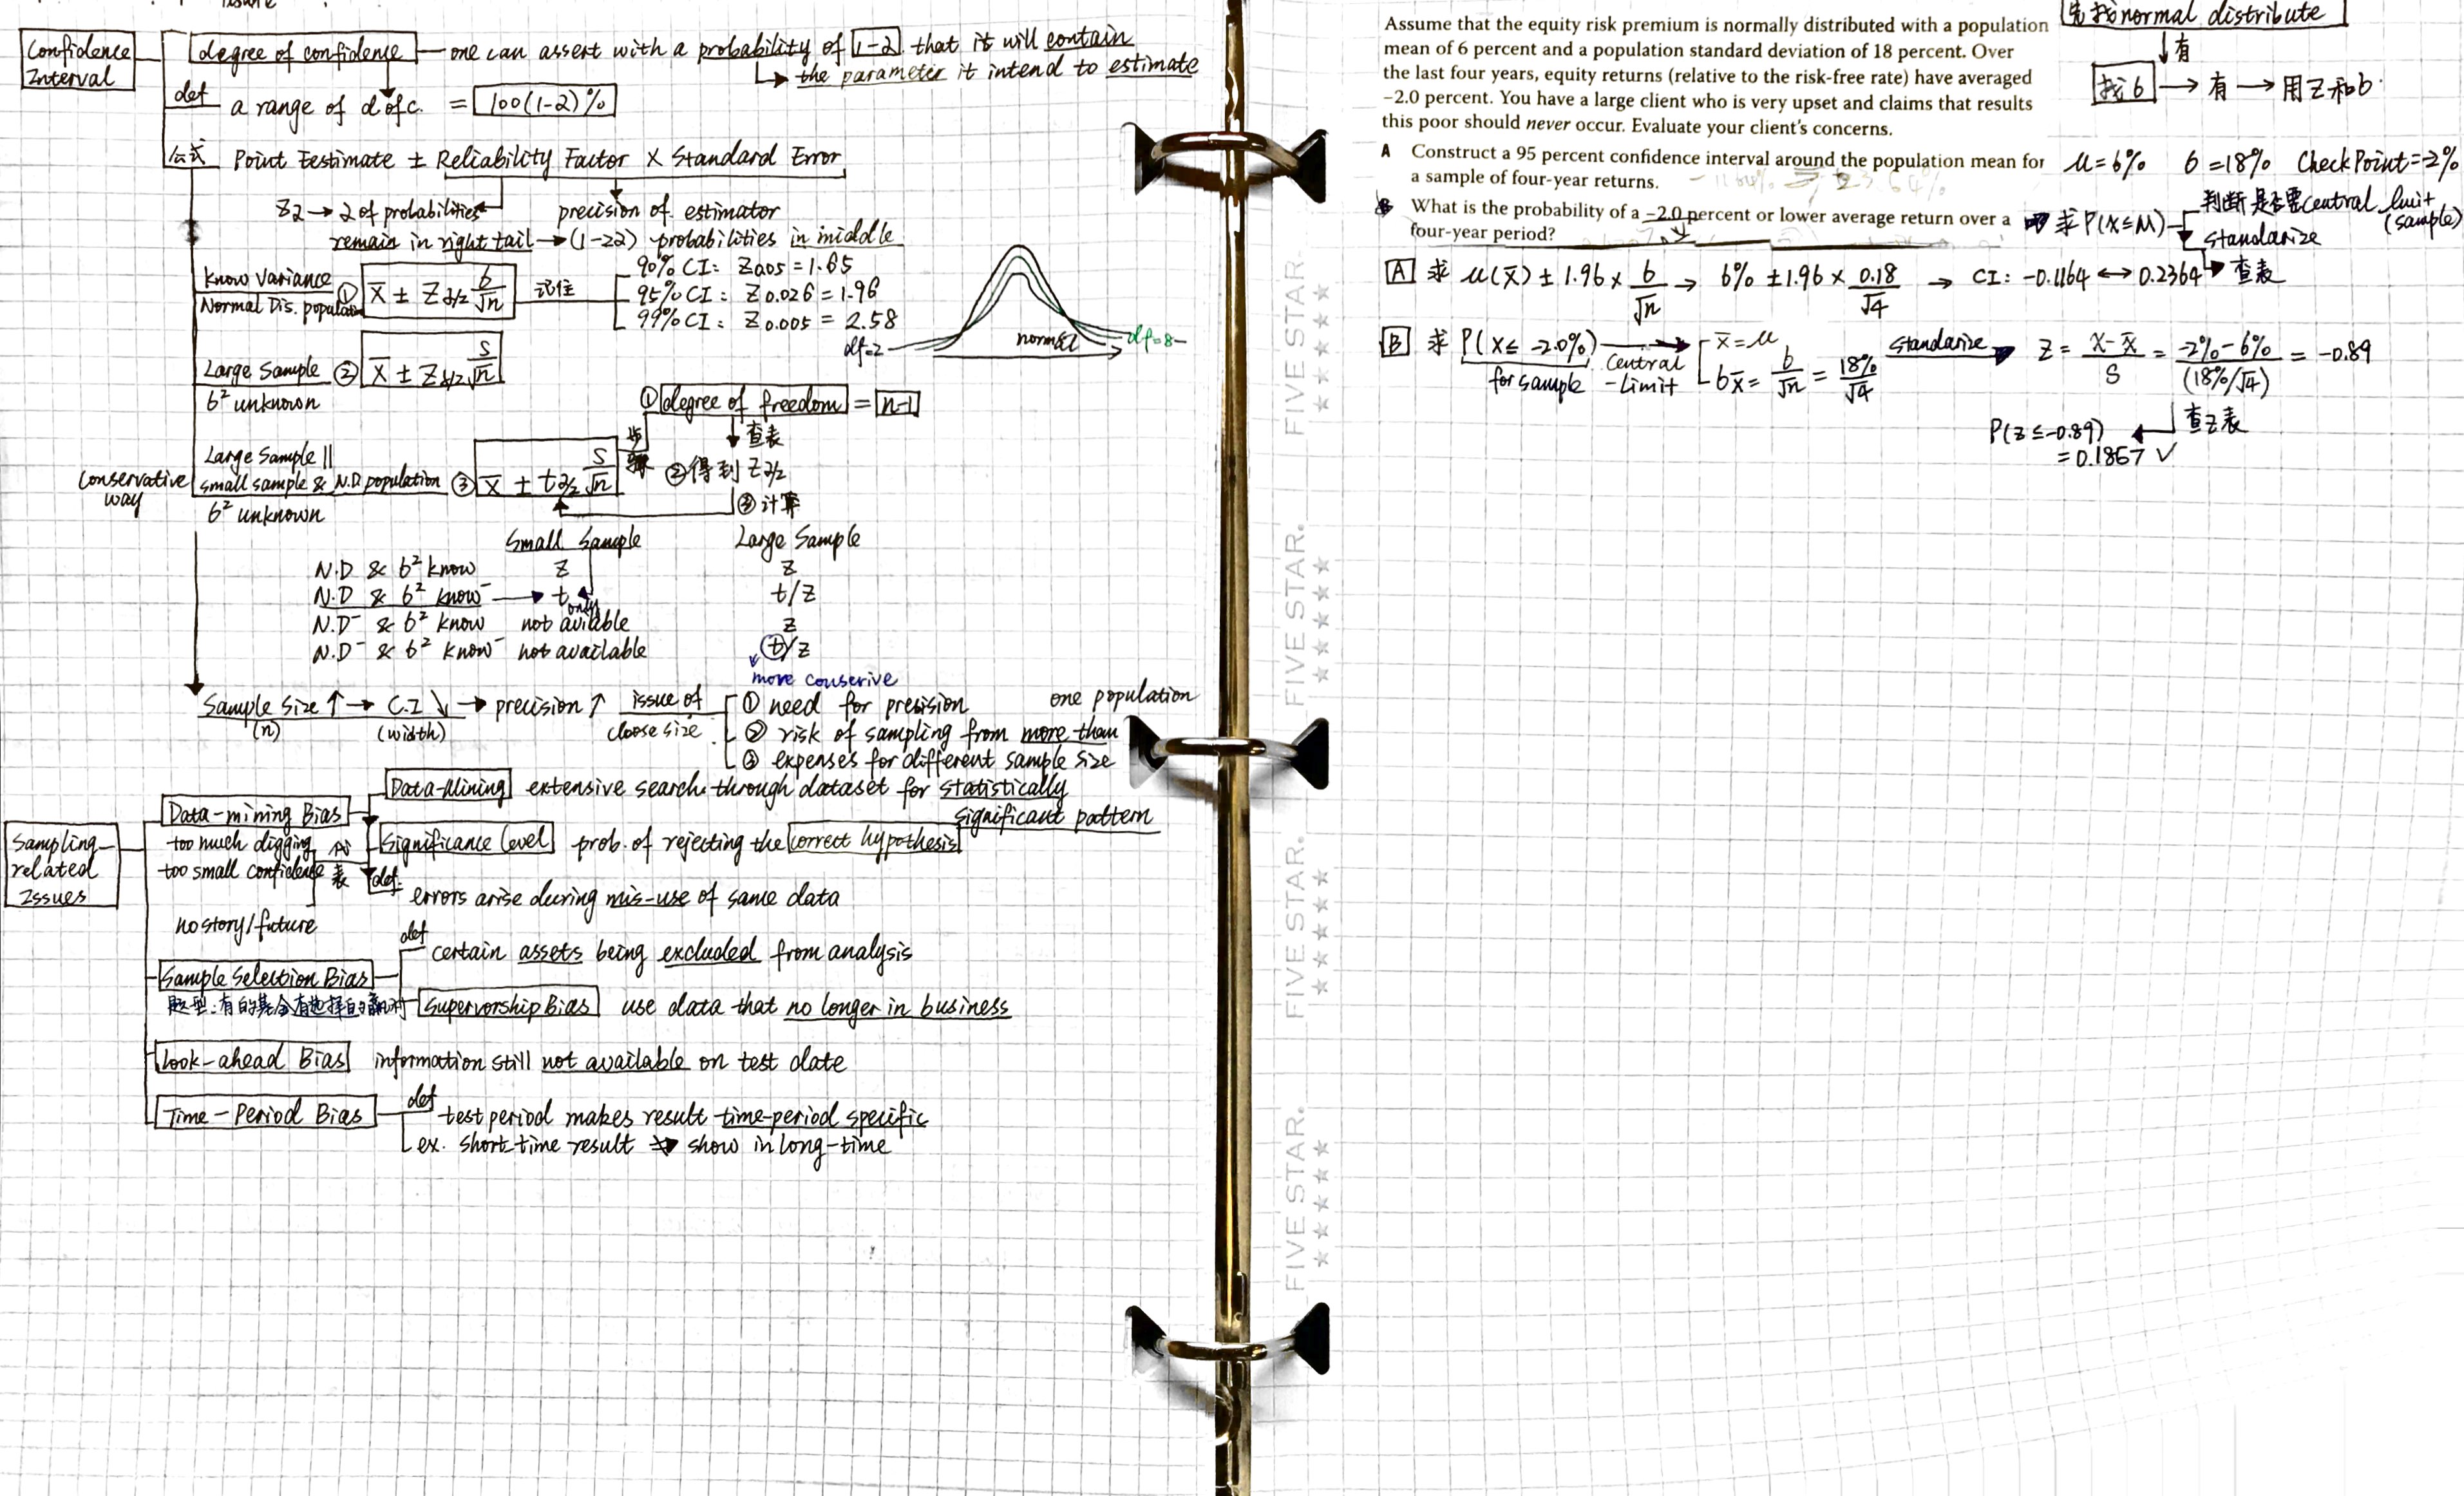 Confidence Interval
degree of confidence — one can assert with a probability of 1-α that it will contain
→ the parameter it intend to estimate
def a range of d.of.c. = 100(1-α)%
公式 Point Eestimate ± Reliability Factor × Standard Error
zα → α of probabilities
remain in right tail → (1-2α) probabilities in middle
precision of estimator
Know Variance
Normal Dis. population ① x̄ ± Zα/2 σ/√n 记住
90% CI: Z0.05 = 1.65
95% CI: Z0.026 = 1.96
99% CI: Z0.005 = 2.58
df=2 normal df=8
Large Sample ② x̄ ± Zα/2 s/√n
σ² unknown
conservative way
Large Sample ||
small sample & N.D population ③ x̄ ± tα/2 s/√n
σ² unknown
① degree of freedom = n-1
查表
② 得到 Zα/2
③ 计算
Small Sample Large Sample
N.D & σ² know z z
N.D & σ² know⁻ → t only t/z
N.D⁻ & σ² know not avilable z
N.D⁻ & σ² know⁻ not available t/z
more conserive
Sample Size ↑ → C.I ↘ → precision ↑ issue of
(n) (width) cloose size
① need for precision
② risk of sampling from more than one population
③ expenses for different sample size
Sampling-related Issues
Data-mining Bias
too much digging
too small confidence
no story/future
代表
Data-Mining extensive search through dataset for statistically
significant pattern
Significance level prob. of rejecting the correct hypothesis
def: errors arise during mis-use of same data
Sample Selection Bias
def certain assets being excluded from analysis
Supervorship Bias use data that no longer in business
Look-ahead Bias information still not available on test date
Time-Period Bias
def test period makes result time-period specific
ex. short-time result ⇏ show in long-time
FIVE STAR.
FIVE STAR.
FIVE STAR.
FIVE STAR.
Assume that the equity risk premium is normally distributed with a population
mean of 6 percent and a population standard deviation of 18 percent. Over
the last four years, equity returns (relative to the risk-free rate) have averaged
−2.0 percent. You have a large client who is very upset and claims that results
this poor should never occur. Evaluate your client's concerns.
A Construct a 95 percent confidence interval around the population mean for
a sample of four-year returns.
B What is the probability of a −2.0 percent or lower average return over a
four-year period?
先找normal distribute
↓有
找σ → 有 → 用Z和σ
μ=6% σ=18% CheckPoint=-2%
求P(X≤M)
判断是否要central limit (sample)
standarize
查表
A 求 μ(x̄) ± 1.96 × σ/√n → 6% ± 1.96 × 0.18/√4 → CI: -0.1164 ↔ 0.2364
B 求 P(X ≤ -2.0%) for sample Central-Limit x̄ = μ
σx̄ = σ/√n = 18%/√4
standarize Z = X-x̄/S = -2%-6%/(18%/√4) = -0.89
查Z表
P(Z≤-0.89)
= 0.1867 ✓